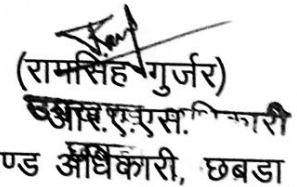 (रामसिंह गुर्जर)
आर.ए.एस.
ण्ड अधिकारी, छबडा